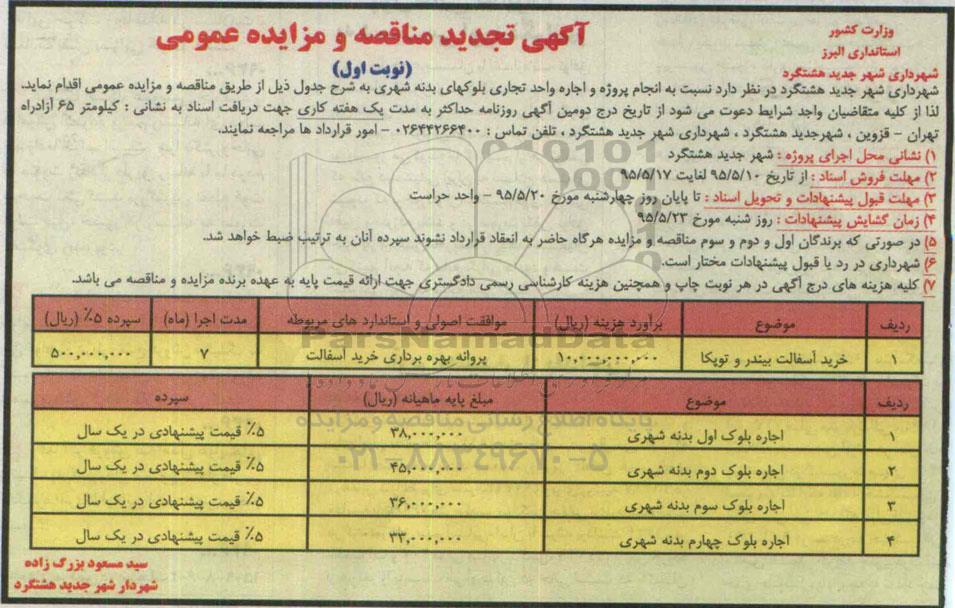 وزارت کشور
استانداری البرز
شهرداری شهر جدید هشتگرد
آگهی تجدید مناقصه و مزایده عمومی
(نوبت اول)
شهرداری شهر جدید هشتگرد در نظر دارد نسبت به انجام پروژه و اجاره واحد تجاری بلوکهای بدنه شهری به شرح جدول ذیل از طریق مناقصه و مزایده عمومی اقدام نماید.
لذا از کلیه متقاضیان واجد شرایط دعوت می شود از تاریخ درج دومین آگهی روزنامه حداکثر به مدت یک هفته کاری جهت دریافت اسناد به نشانی : کیلومتر ۶۵ آزادراه
تهران - قزوین ، شهرجدید هشتگرد ، شهرداری شهر جدید هشتگرد ، تلفن تماس : ۰۲۶۴۴۲۶۶۴۰۰ - امور قرارداد ها مراجعه نمایند.
۱) نشانی محل اجرای پروژه : شهر جدید هشتگرد
۲) مهلت فروش اسناد : از تاریخ ۹۵/۵/۱۰ لغایت ۹۵/۵/۱۷
۳) مهلت قبول پیشنهادات و تحویل اسناد : تا پایان روز چهارشنبه مورخ ۹۵/۵/۲۰ - واحد حراست
۴) زمان گشایش پیشنهادات : روز شنبه مورخ ۹۵/۵/۲۳
۵) در صورتی که برندگان اول و دوم و سوم مناقصه و مزایده هرگاه حاضر به انعقاد قرارداد نشوند سپرده آنان به ترتیب ضبط خواهد شد.
۶) شهرداری در رد یا قبول پیشنهادات مختار است.
۷) کلیه هزینه های درج آگهی در هر نوبت چاپ و همچنین هزینه کارشناسی رسمی دادگستری جهت ارائه قیمت پایه به عهده برنده مزایده و مناقصه می باشد.
ردیف موضوع برآورد هزینه (ریال) موافقت اصولی و استاندارد های مربوطه مدت اجرا (ماه) سپرده ۵٪ (ریال)
۱ خرید آسفالت بیندر و توپکا ۱۰,۰۰۰,۰۰۰,۰۰۰ پروانه بهره برداری خرید آسفالت ۷ ۵۰۰,۰۰۰,۰۰۰
ردیف موضوع مبلغ پایه ماهیانه (ریال) سپرده
۱ اجاره بلوک اول بدنه شهری ۳۸,۰۰۰,۰۰۰ ۵٪ قیمت پیشنهادی در یک سال
۲ اجاره بلوک دوم بدنه شهری ۴۵,۰۰۰,۰۰۰ ۵٪ قیمت پیشنهادی در یک سال
۳ اجاره بلوک سوم بدنه شهری ۳۶,۰۰۰,۰۰۰ ۵٪ قیمت پیشنهادی در یک سال
۴ اجاره بلوک چهارم بدنه شهری ۳۳,۰۰۰,۰۰۰ ۵٪ قیمت پیشنهادی در یک سال
سید مسعود بزرگ زاده
شهردار شهر جدید هشتگرد
ParsNamadData
پایگاه اطلاع رسانی مناقصه و مزایده
۰۲۱-۸۸۳۴۹۶۷۰-۵